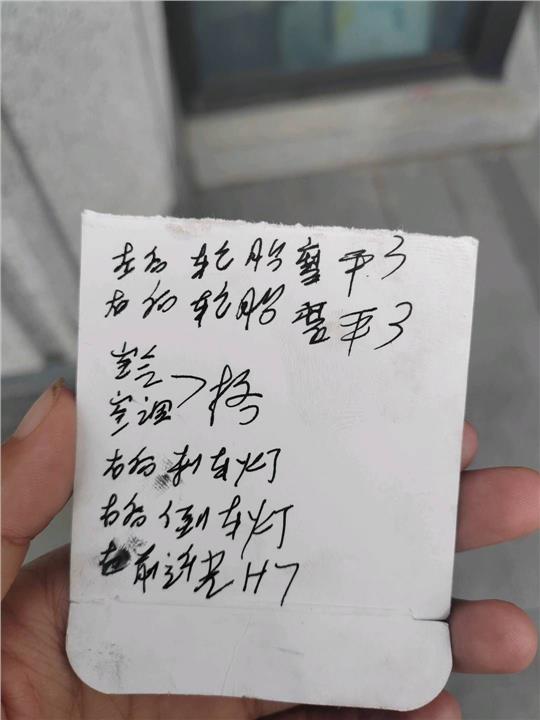 左后轮胎磨平了
右后轮胎磨平了
空气
空调 > 格
右后刹车灯
右后倒车灯
左前近光H7